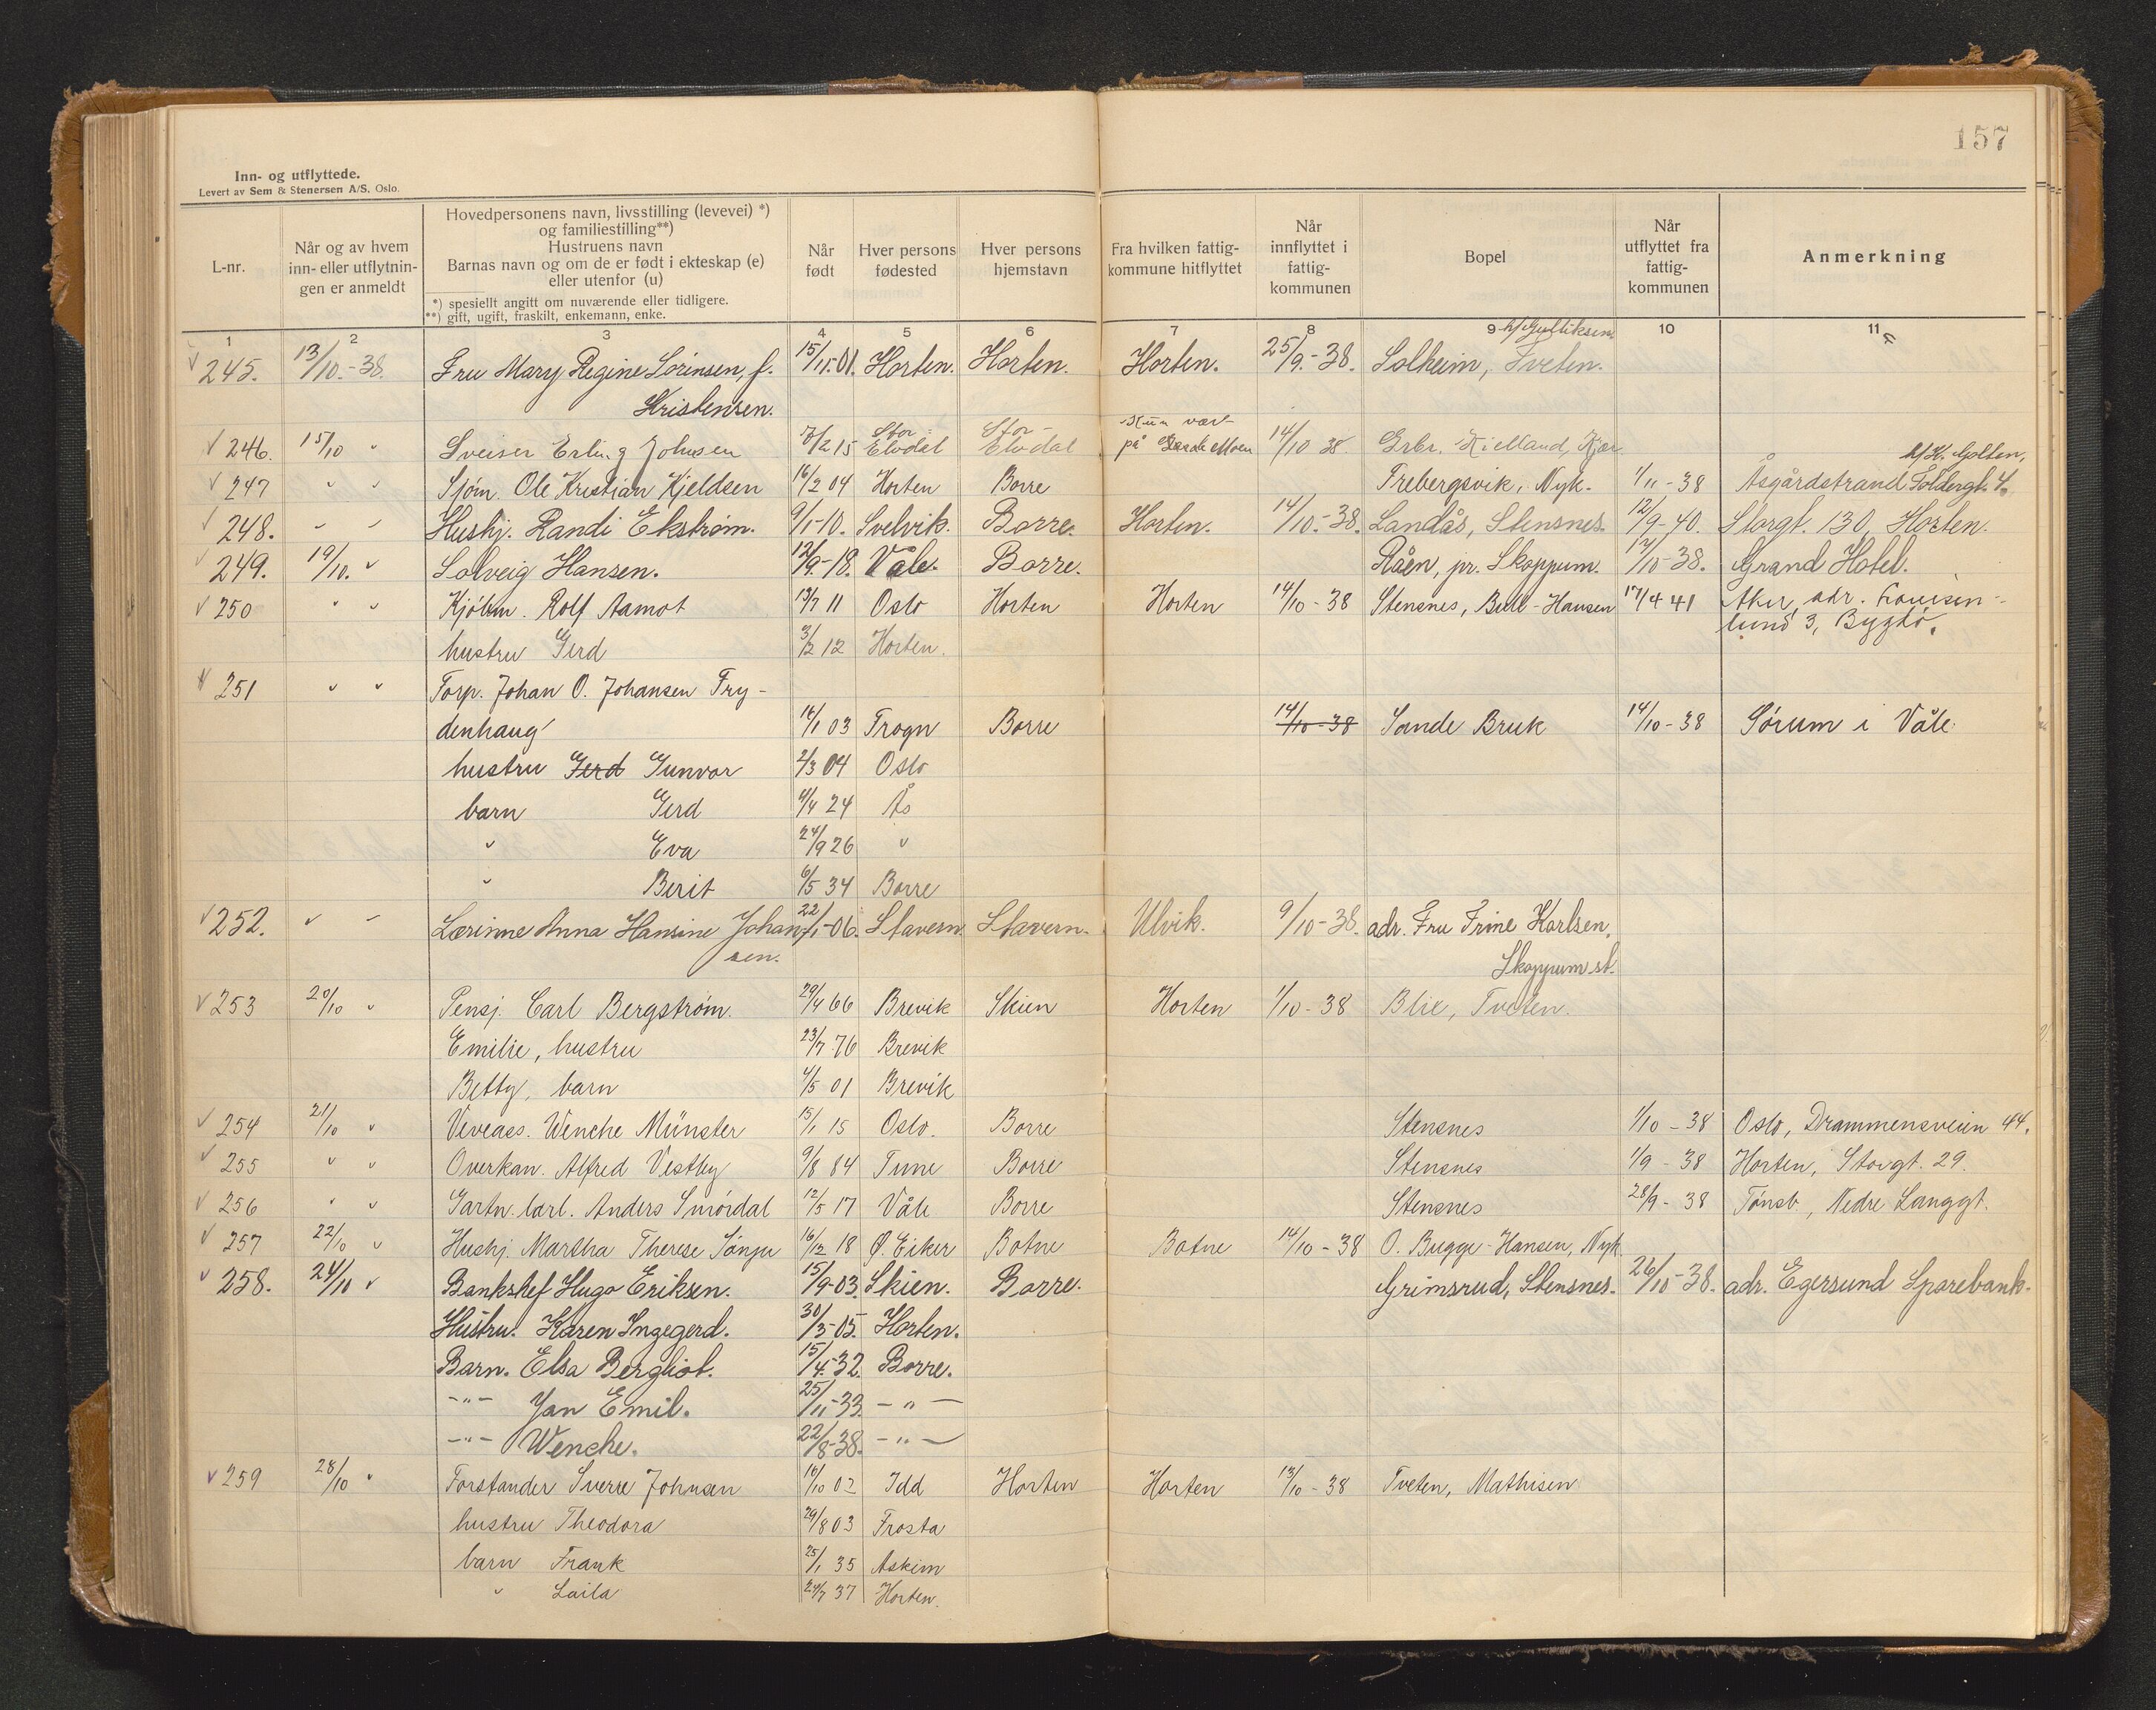 157
Inn- og utflyttede.
Levert av Sem & Stenersen A/S. Oslo.
L-nr. | Når og av hvem inn- eller utflytningen er anmeldt | Hovedpersonens navn, livsstilling (levevei) *) og familiestilling**) Hustruens navn Barnas navn og om de er født i ekteskap (e) eller utenfor (u) | Når født | Hver persons fødested | Hver persons hjemstavn | Fra hvilken fattigkommune hitflyttet | Når innflyttet i fattigkommunen | Bopel | Når utflyttet fra fattigkommunen | Anmerkning
*) spesiellt angitt om nuværende eller tidligere.
**) gift, ugift, fraskilt, enkemann, enke.
1 2 3 4 5 6 7 8 9 10 11
h/Gulliksen
245. 13/10.-38. Fru Mary Regine Sørensen, f. 15/11.01. Horten. Horten. Horten. 25/9.-38. Solheim, Tveten.
Kristensen.
246. 15/10 " Sveiser Erling Johnsen 7/2 15 Stor-Elvdal Stor-Elvdal Kun vær- på Moen 14/10 38. Grbr. Kielland, Kjær
h/K. Golten,
247 " " Sjøm. Ole Kristian Kjeldsen 16/2 04 Horten Borre Trebergsvik, Nyk. 1/11-38 Åsgårdstrand
248. - - Hushj. Randi Ekstrøm. 9/1-10. Svelvik. Borre. Horten. 14/10.-38. Landås, Stensnes. 12/9-40. Storgt. 130, Horten.
249. 19/10. " Solveig Hansen. 12/9.-18. Våle. Borre. Råen, pr. Skoppum. 17/10-38. Grand Hotel.
250 " " Rolf Aamot 13/7 11 Oslo Horten Horten 14/10-38 Stensnes, Bull-Hansen 17/4 41 Aker, adr. Louisen-
lund 3, Bygdø.
hustru Gerd 3/2 12 Horten.
251 " " Torp. Johan O. Johansen Fry-
denhaug 16/1 03 Frogn Borre 14/10-38 Sande Bruk 14/10-38 Sørum i Våle.
hustru Gerd Gunvor 2/3 04 Oslo
barn Gerd 11/4 24 Ås
" Eva 24/9 26 "
" Berit 6/5 34 Borre
252. " - Lærinne Anna Hansine Johan- 22/1-06. Stavern. Stavern. Ulvik. 9/10-38. adr. Fru Trine Karlsen,
sen. Skoppum st.
253 20/10 " Pensj. Carl Bergstrøm. 29/4 66 Brevik Skien Horten 1/10-38 Blie, Tveten.
Emilie, hustru 23/7 76 Brevik
Betty, barn 4/5 01 Brevik
254 21/10 " Veveass. Wenche Münster 15/1 15 Oslo. Borre Stensnes 1/10-38 Oslo, Drammensveien 44.
255 " " Overkan. Alfred Vestby 9/8 84 Tune Borre Stensnes 1/9-38 Horten, Storgt. 29.
256 " " Gartn. lærl. Anders Smørdal 12/5 17 Våle Borre Stensnes 28/9-38 Tønsb., Nedre Langgt.
257 22/10 " Hushj. Martha Therese 16/12 18 Ø. Eiker Botne Botne 14/10-38 O. Bugge-Hansen, Nyk.
258. 24/10 " Bankshef Hugo Eriksen. 15/9-03. Skien. Borre. Grimsrud, Stensnes. 26/10-38. adr. Egersund Sparebank.
Hustru. Karen Ingegerd. 30/3-05. Horten.
Barn. Elsa Bergliot. 15/4-32. Borre.
-"- Jan Emil. 25/11-33. -"-
-"- Wenche. 22/8-38. -"-
259 28/10 " Forstander Sverre Johnsen 16/10 02 Idd Horten Horten 13/10-38 Tveten, Mathisen
hustru Theodora 29/8 03 Frosta
barn Frank 25/1 35 Askim
" Laila 24/7 37 Horten.